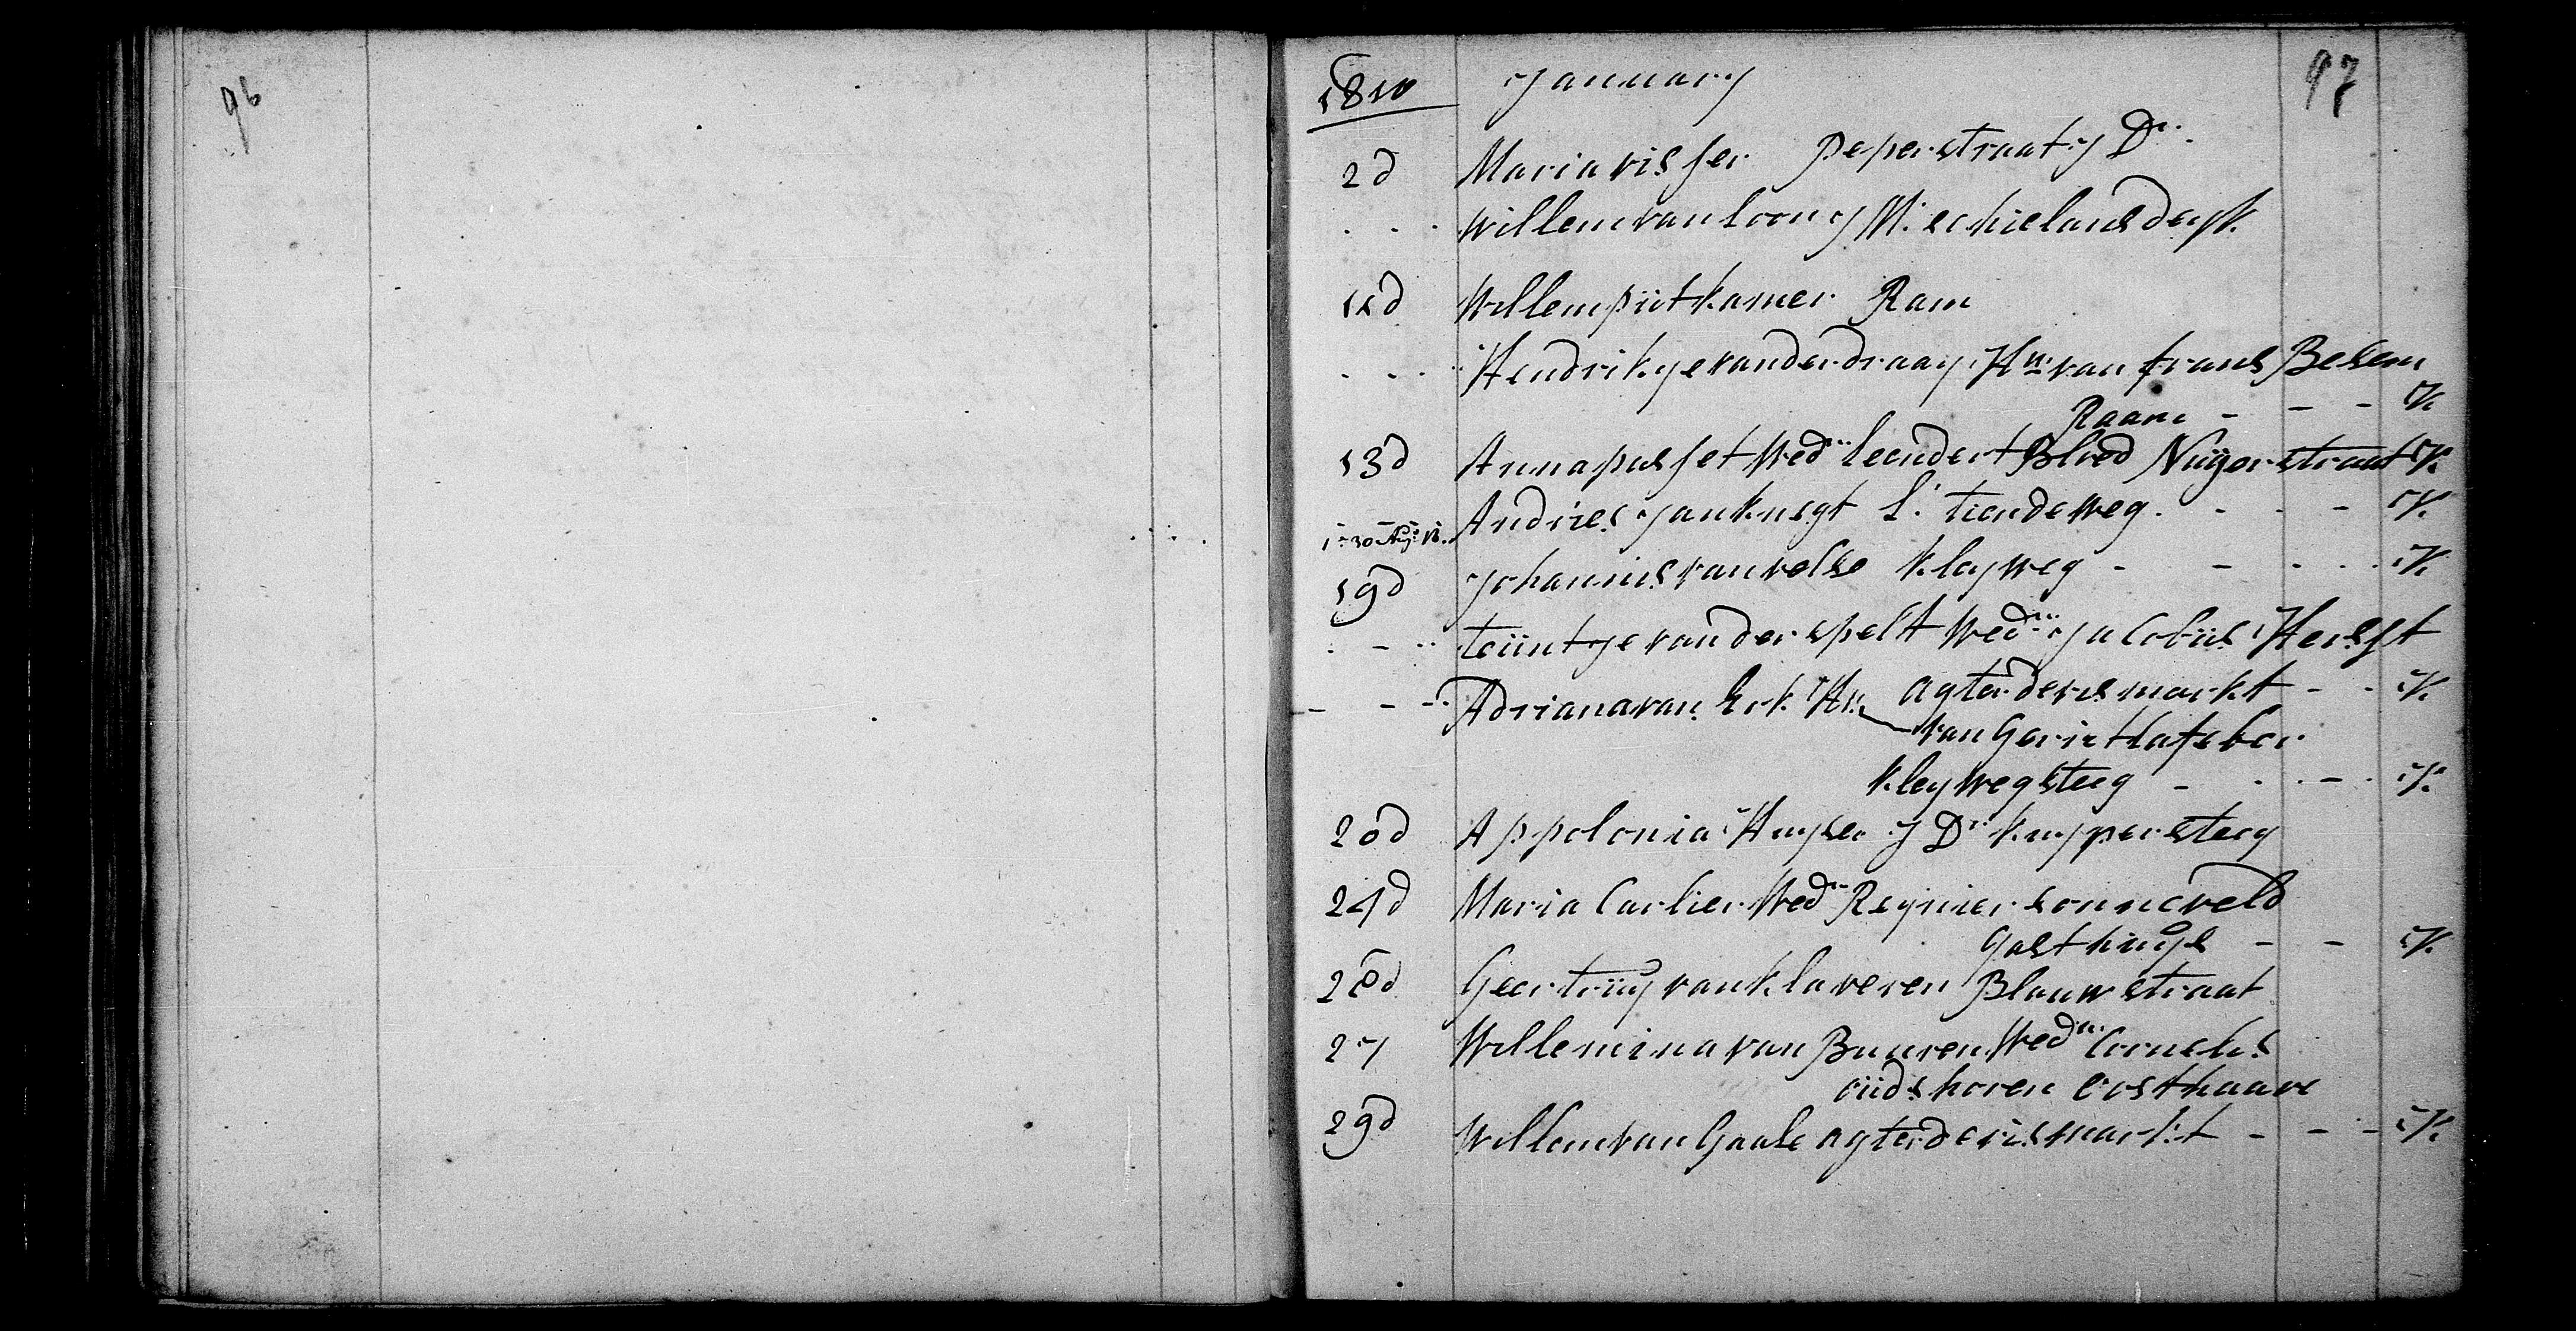 96
97
1810 January
2d Maria visser Peperstraat j Dr.
. . . Willem van Loon j M: schielands deyk
12d Willem putkamer Ram
. . . Hendrikje van der draay Hvr: van frans Besem
Raam - - - K
13d Anna pusset Wedü Leendert Blœd Nüyerstraat K
Andries jonknegt L: tiendeweg . . . - K
19d Johannis van velse Kleyweg - - . . . K
. - .. teüntje van der spelt Wedü: Jacobüs Herfst
agter de vismarkt - - K
- - -. Adriana van Erk Hvr:
van Gerrit Lafeber
kleywegsteeg - . . - . K
20d Appolonia Huyser j Dr kuypersteeg
24d Maria Carlier Wedü Reynier sonneveld
Gasthuys - - K
26d Geertrüy van klaveren Blauwstraat
27 Willemina van Buuren Wedü Cornelis
oüdshoren oosthaave
29d Willem van Gaale agter de vismarkt - - - K